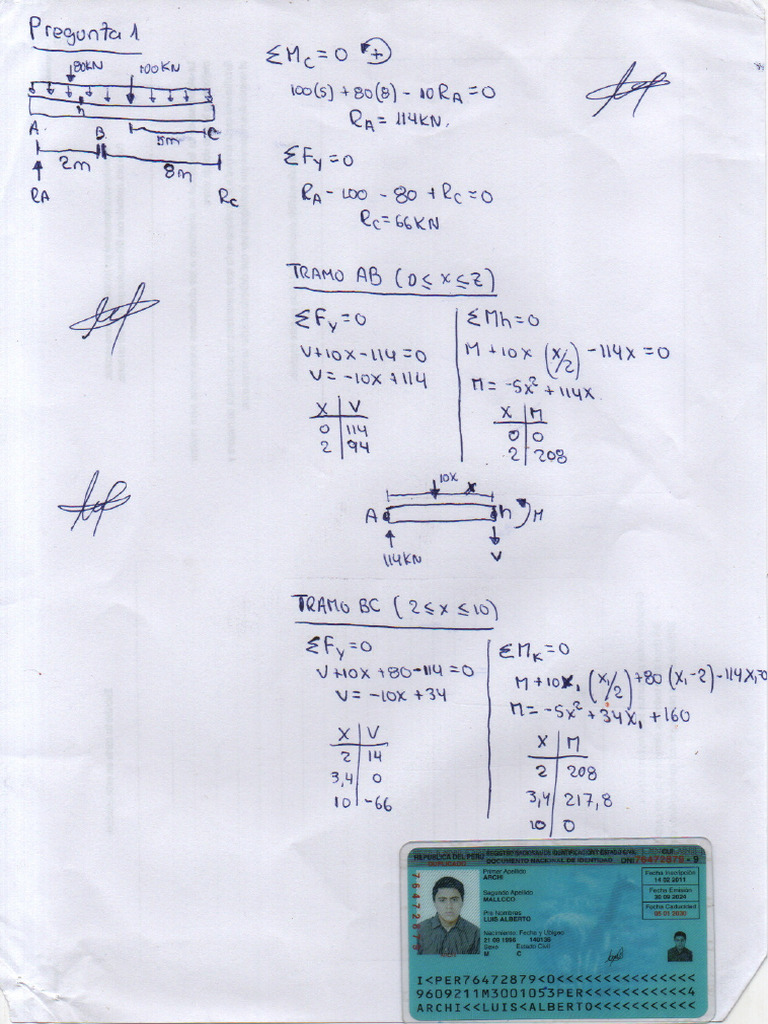 Pregunta 1
80KN
100KN
h
A
B
C
5m
2m
8m
RA
RC
ΣMC = 0 +
100(5) + 80(8) - 10RA = 0
RA = 114KN.
ΣFy = 0
RA - 100 - 80 + RC = 0
RC = 66KN
TRAMO AB (0 ≤ x ≤ 2)
ΣFy = 0
V + 10x - 114 = 0
V = -10x + 114
X V
0 114
2 94
ΣMh = 0
M + 10x (x/2) - 114x = 0
M = -5x² + 114x
X M
0 0
2 208
10x
x
A
h
M
114KN
V
TRAMO BC (2 ≤ x ≤ 10)
ΣFy = 0
V + 10x + 80 - 114 = 0
V = -10x + 34
X V
2 14
3,4 0
10 -66
ΣMK = 0
M + 10x₁ (x₁/2) + 80 (x₁ - 2) - 114x₁ = 0
M = -5x² + 34x₁ + 160
X M
2 208
3,4 217,8
10 0
REPUBLICA DEL PERU
DUPLICADO
DOCUMENTO NACIONAL DE IDENTIDAD
DNI 76472879 - 9
76472879
Primer Apellido
ARCHI
Segundo Apellido
MALLCCO
Pre Nombres
LUIS ALBERTO
Nacimiento: Fecha y Ubigeo
Sexo
Estado Civil
M
C
Fecha Inscripción
14 02 2011
Fecha Emisión
Fecha Caducidad
05 01 2030
I<PER76472879<0<<<<<<<<<<<<<<<
9609211M3001053PER<<<<<<<<<<<4
ARCHI<<LUIS<ALBERTO<<<<<<<<<<<